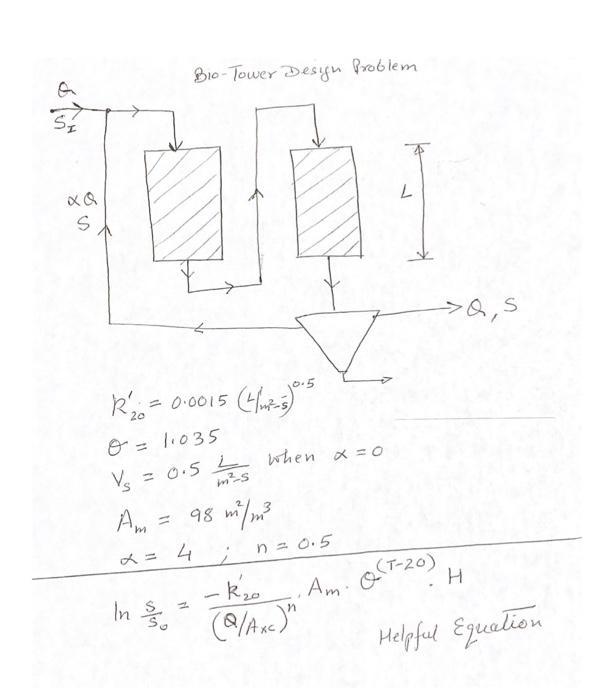 Bio-Tower Design Problem
Q
S_I
αQ
S
L
Q, S
k'_20 = 0.0015 (L/m²-s)^0.5
θ = 1.035
V_s = 0.5 L/m²-s when α = 0
A_m = 98 m²/m³
α = 4 ; n = 0.5
ln S/S_o = -k'_20/(Q/A_xc)^n . A_m . θ^(T-20) . H
Helpful Equation